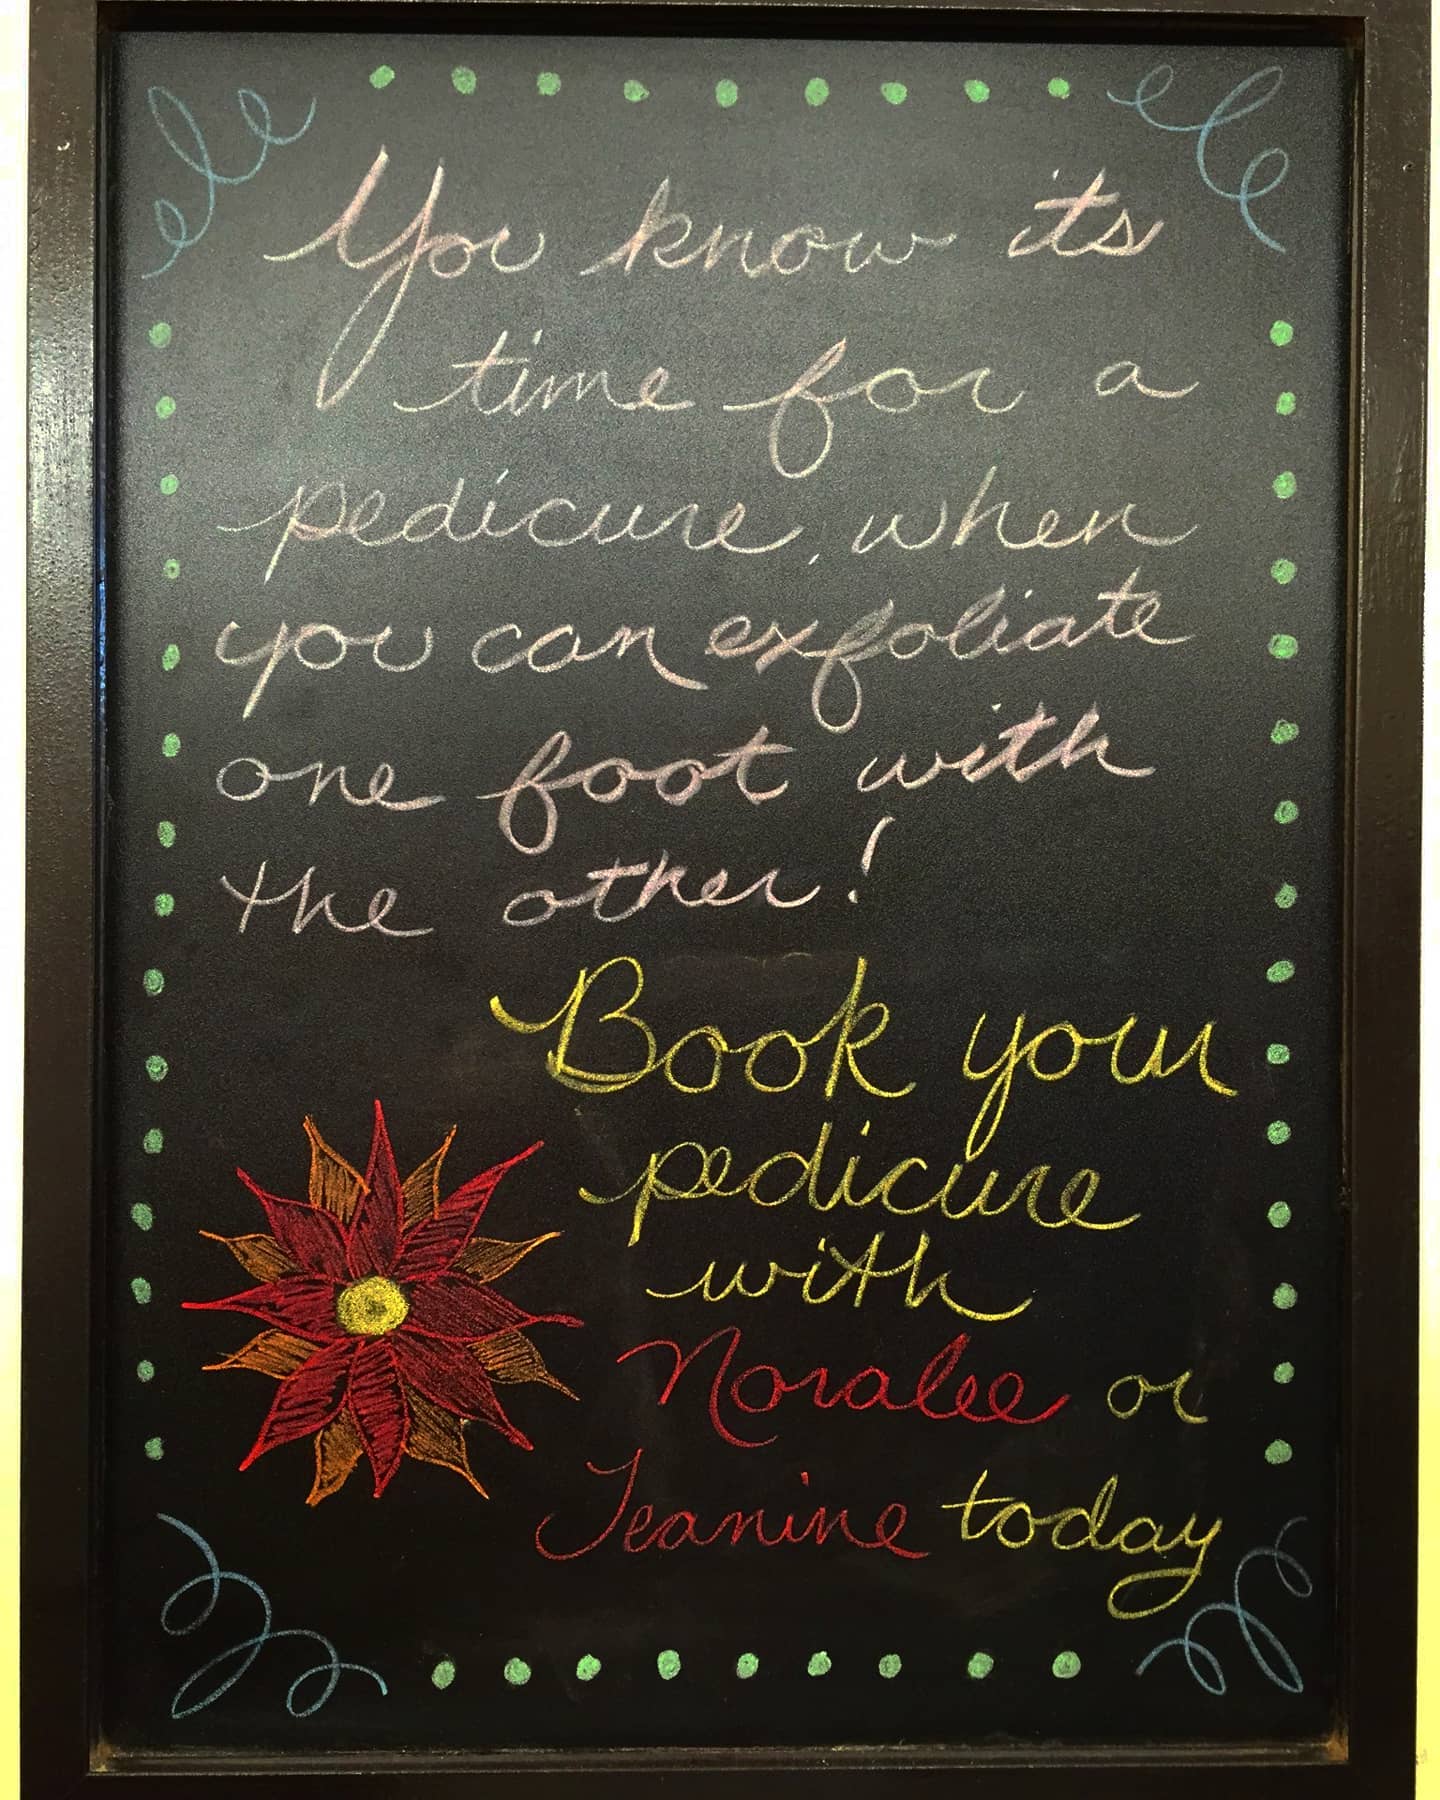 You know its
time for a
pedicure, when
you can exfoliate
one foot with
the other!
Book your
pedicure
with
Noralee or
Jeanine today